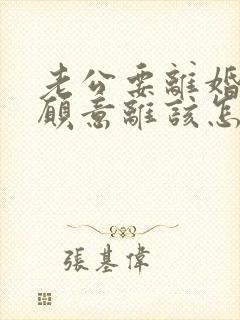 老公要離婚
願意離該怎
張基偉